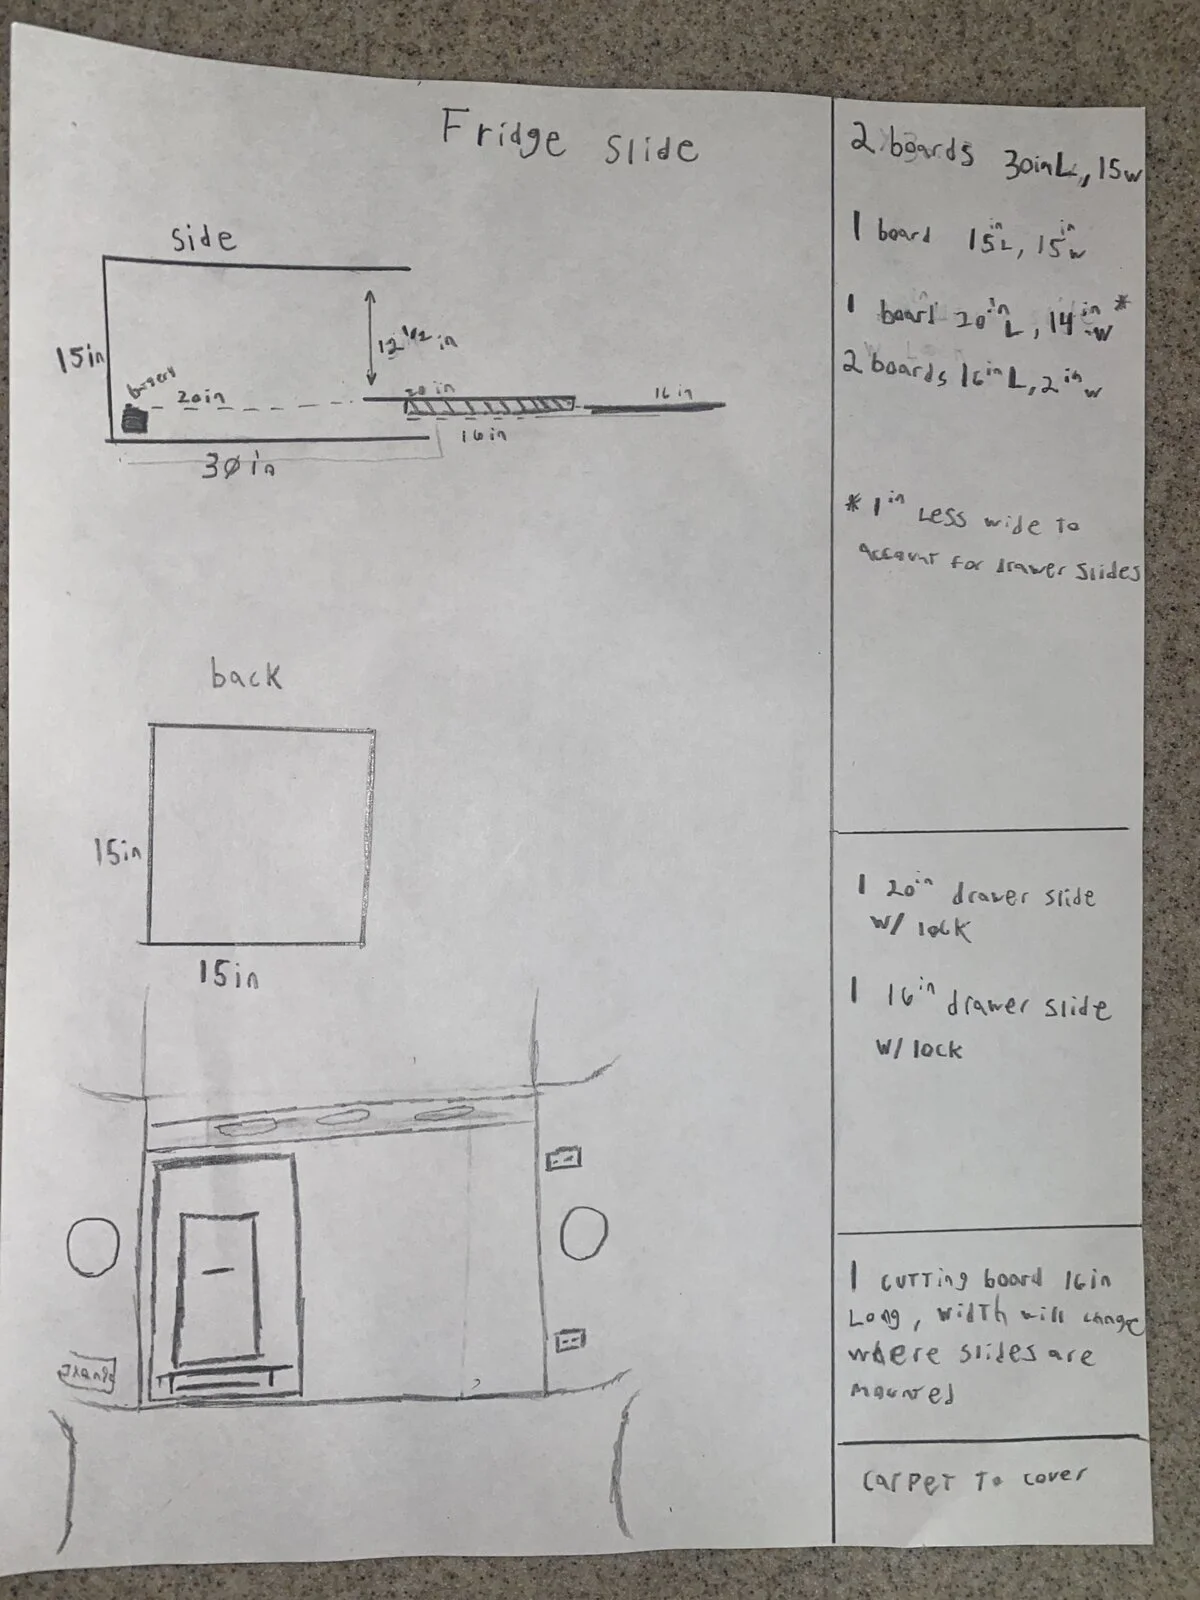 Fridge Slide
side
15in
20in
12 1/2 in
20 in
16 in
16 in
30 in
back
15in
15in
2 boards 30in L, 15w
1 board 15in L, 15in w
1 board 20in L, 14in w *
2 boards 16in L, 2in w
* 1in Less wide to
account for drawer slides
1 20in drawer slide
w/ lock
1 16in drawer slide
w/ lock
1 cutting board 16in
Long, width will change
where slides are
mounted
carpet to cover